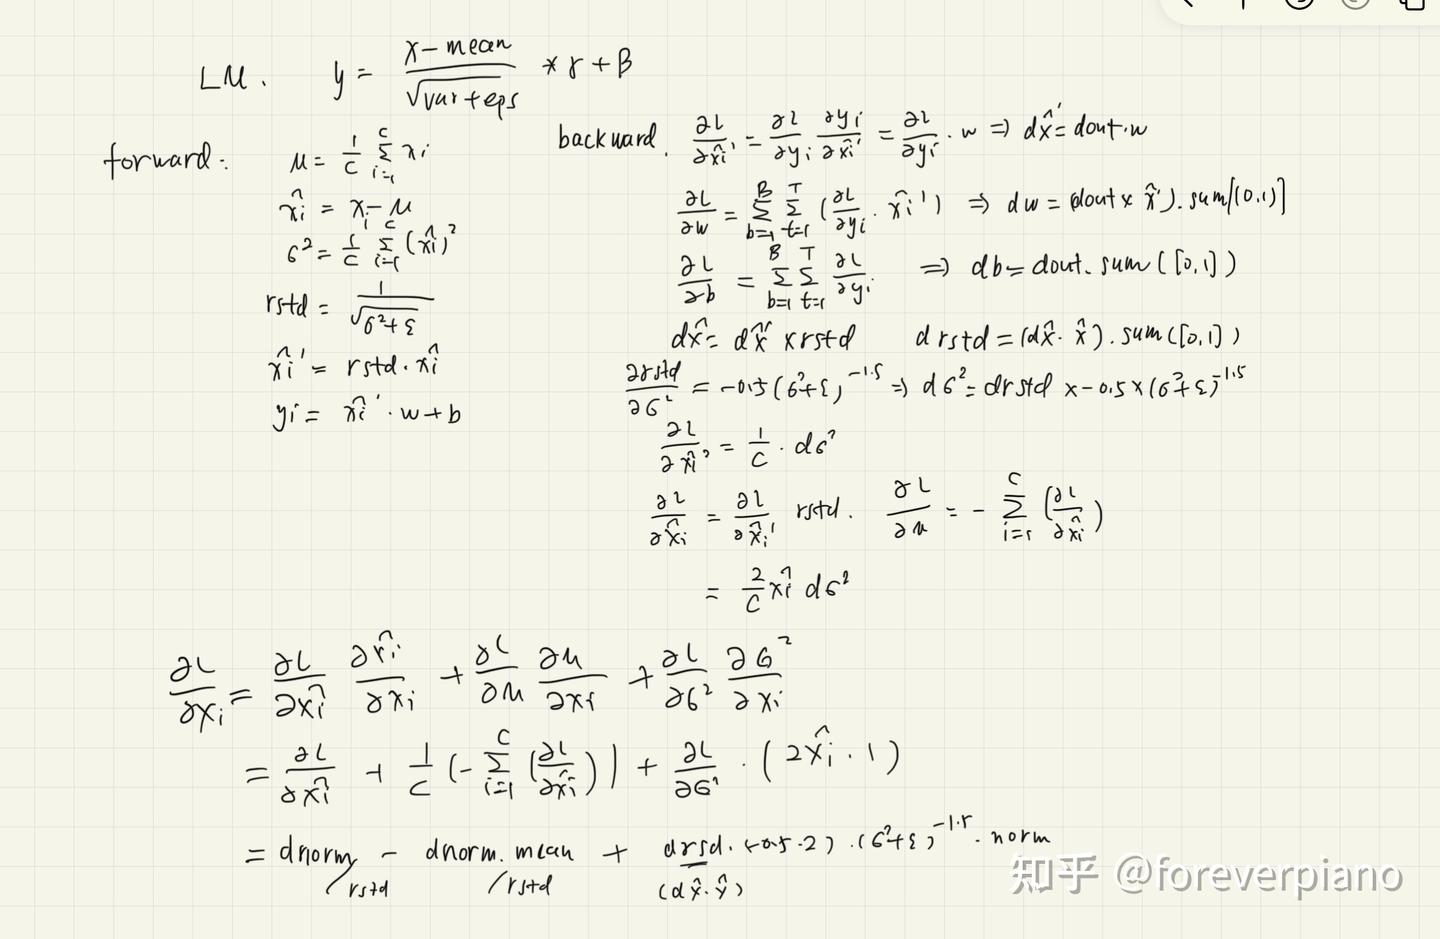 LN. y = (x - mean)/√(var+eps) * γ + β
forward: μ = 1/C Σ_{i=1}^{C} xi
x̂i = xi - μ
σ² = 1/C Σ_{i=1}^{C} (x̂i)²
rstd = 1/√(σ²+ε)
x̂i' = rstd · x̂i
yi = x̂i' · w + b
backward. ∂L/∂x̂i' = ∂L/∂yi ∂yi/∂x̂i' = ∂L/∂yi · w ⇒ dx̂' = dout·w
∂L/∂w = Σ_{b=1}^{B} Σ_{t=1}^{T} (∂L/∂yi · x̂i') ⇒ dw = (dout × x̂').sum([0,1)]
∂L/∂b = Σ_{b=1}^{B} Σ_{t=1}^{T} ∂L/∂yi ⇒ db = dout.sum([0,1])
dx̂ = dx̂' × rstd drstd = (dx̂·x̂).sum([0,1])
∂rstd/∂σ² = -0.5(σ²+ε)^-1.5 ⇒ dσ² = drstd × -0.5×(σ²+ε)^-1.5
∂L/∂x̂i² = 1/C · dσ²
∂L/∂x̂i = ∂L/∂x̂i' rstd. ∂L/∂μ = - Σ_{i=1}^{C} (∂L/∂x̂i)
= 2/C x̂i dσ²
∂L/∂xi = ∂L/∂x̂i ∂x̂i/∂xi + ∂L/∂μ ∂μ/∂xi + ∂L/∂σ² ∂σ²/∂xi
= ∂L/∂x̂i + 1/C (- Σ_{i=1}^{C} (∂L/∂x̂i)) + ∂L/∂σ² · (2x̂i · 1)
= dnorm/rstd - dnorm.mean/rstd + drsd·(-0.5·2)·(σ²+ε)^-1.5 · norm
(dx̂·x̂)
知乎 @foreverpiano